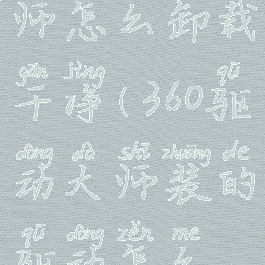 师怎么卸载
gān jìng qū
干净(360驱
dòng dà shī zhuāng de
动大师装的
qū dòng zěn me
驱动怎么